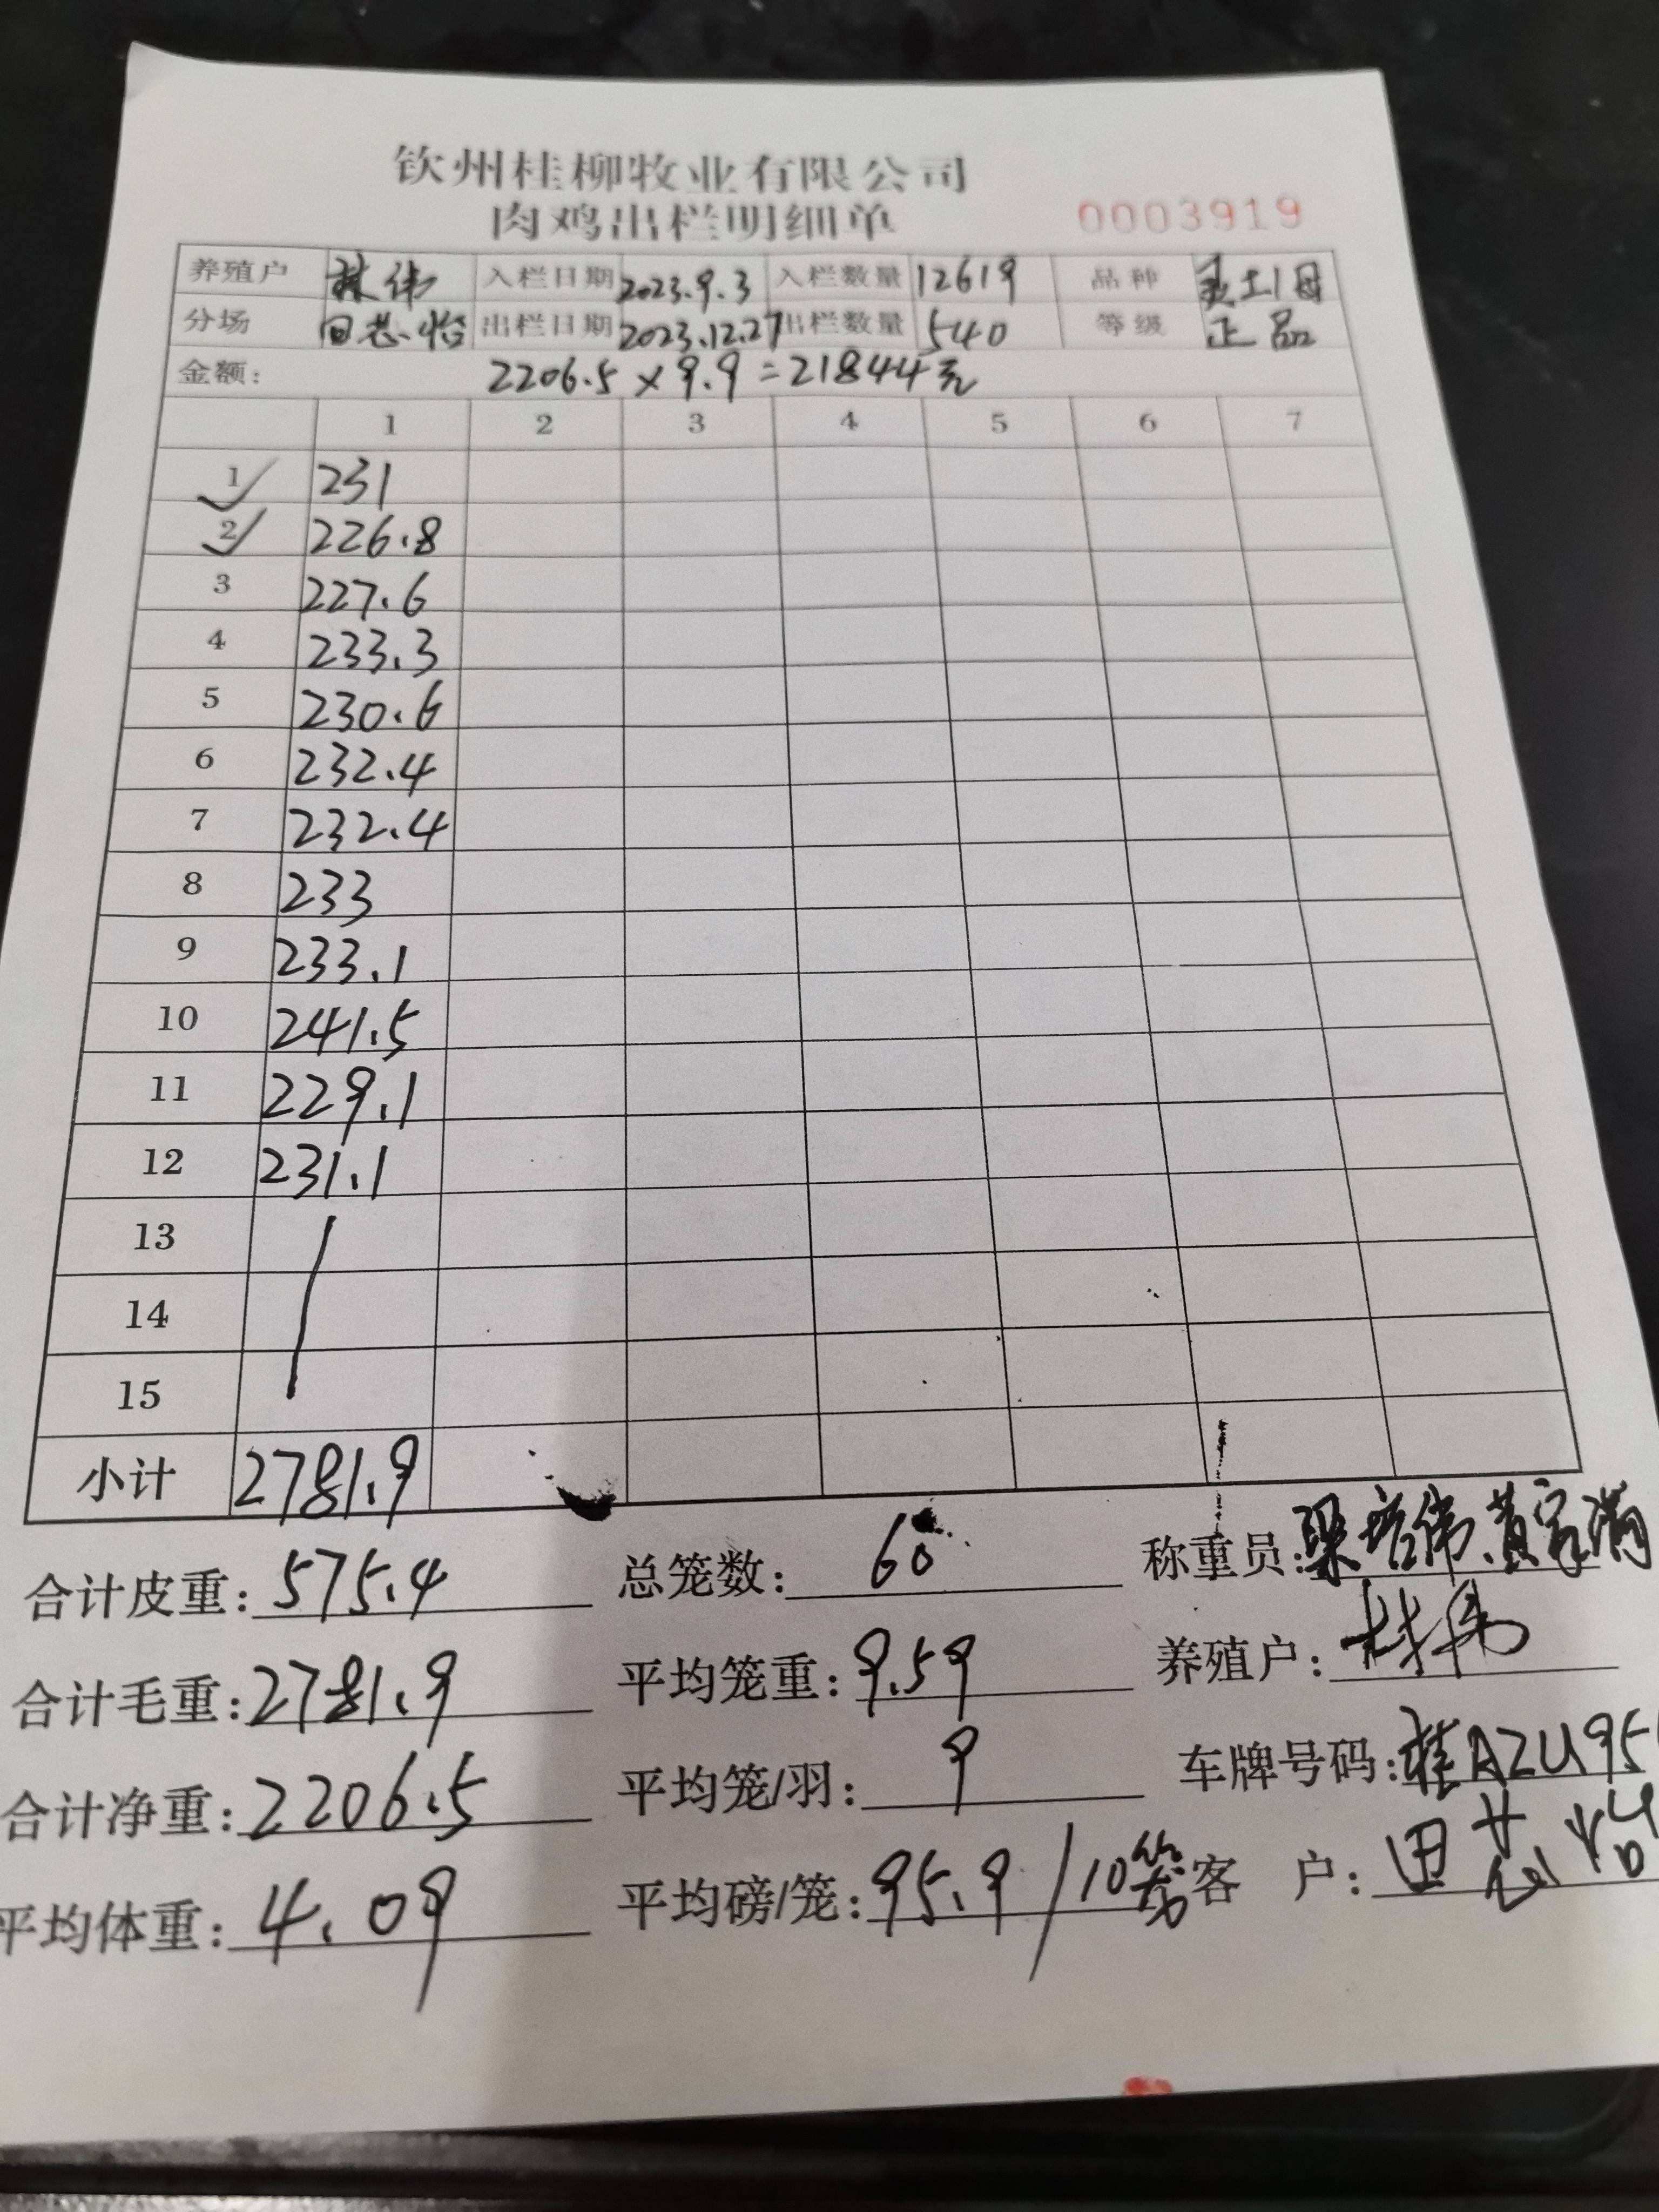 钦州桂柳牧业有限公司
肉鸡出栏明细单 0003919
养殖户 林伟 入栏日期 2023.9.3 入栏数量 12619 品种 土1母
分场 出栏日期 2023.12.27 出栏数量 540 等级 正品
金额: 2206.5 × 9.9 = 21844元
1 2 3 4 5 6 7
1 231
2 226.8
3 227.6
4 233.3
5 230.6
6 232.4
7 232.4
8 233
9 233.1
10 241.5
11 229.1
12 231.1
13
14
15
小计 2781.9
合计皮重: 575.4 总笼数: 60 称重员: 梁培伟 黄家满
合计毛重: 2781.9 平均笼重: 9.59 养殖户: 林伟
合计净重: 2206.5 平均笼/羽: 9 车牌号码: 桂AZU95
平均体重: 4.09 平均磅/笼: 95.9/10笼 客 户: